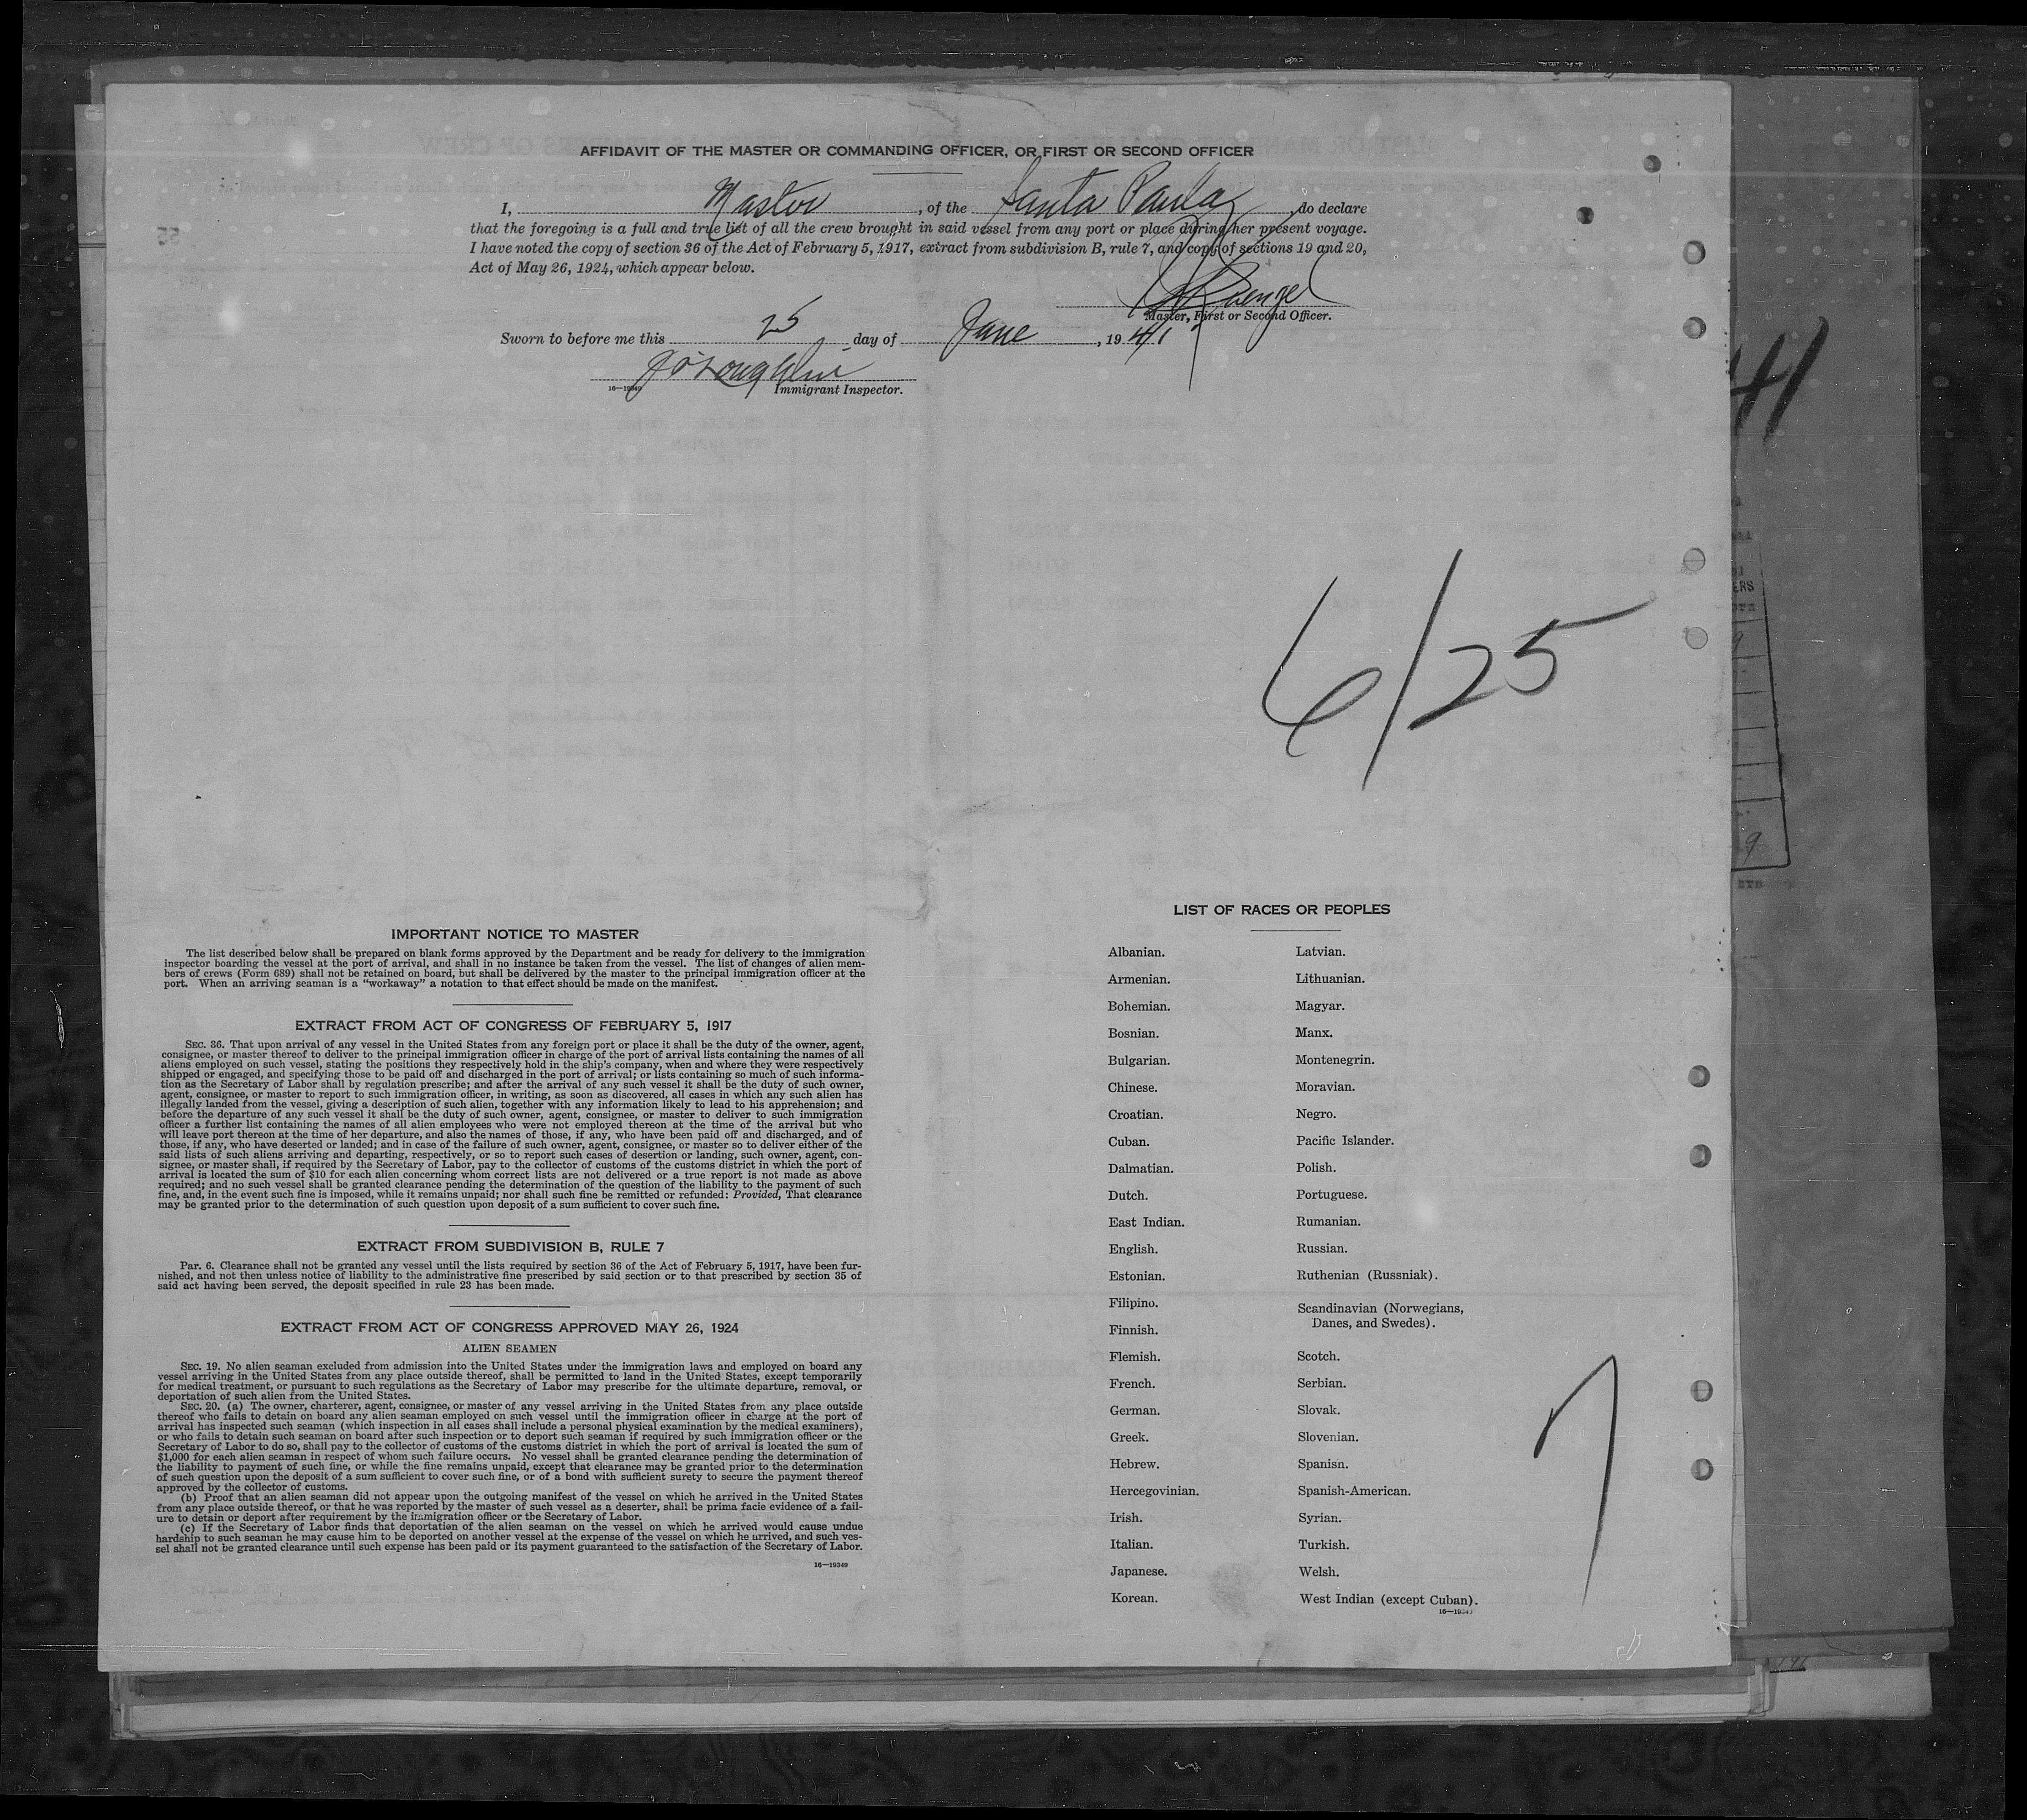 AFFIDAVIT OF THE MASTER OR COMMANDING OFFICER, OR FIRST OR SECOND OFFICER
I, Master, of the Santa Paula, do declare
that the foregoing is a full and true list of all the crew brought in said vessel from any port or place during her present voyage.
I have noted the copy of section 36 of the Act of February 5, 1917, extract from subdivision B, rule 7, and copy of sections 19 and 20,
Act of May 26, 1924, which appear below.
Master, First or Second Officer.
Sworn to before me this 25 day of June, 1941
J O'Loughlin
16—19349 Immigrant Inspector.
41
6/25
IMPORTANT NOTICE TO MASTER
The list described below shall be prepared on blank forms approved by the Department and be ready for delivery to the immigration
inspector boarding the vessel at the port of arrival, and shall in no instance be taken from the vessel. The list of changes of alien mem-
bers of crews (Form 689) shall not be retained on board, but shall be delivered by the master to the principal immigration officer at the
port. When an arriving seaman is a "workaway" a notation to that effect should be made on the manifest.
EXTRACT FROM ACT OF CONGRESS OF FEBRUARY 5, 1917
SEC. 36. That upon arrival of any vessel in the United States from any foreign port or place it shall be the duty of the owner, agent,
consignee, or master thereof to deliver to the principal immigration officer in charge of the port of arrival lists containing the names of all
aliens employed on such vessel, stating the positions they respectively hold in the ship's company, when and where they were respectively
shipped or engaged, and specifying those to be paid off and discharged in the port of arrival; or lists containing so much of such informa-
tion as the Secretary of Labor shall by regulation prescribe; and after the arrival of any such vessel it shall be the duty of such owner,
agent, consignee, or master to report to such immigration officer, in writing, as soon as discovered, all cases in which any such alien has
illegally landed from the vessel, giving a description of such alien, together with any information likely to lead to his apprehension; and
before the departure of any such vessel it shall be the duty of such owner, agent, consignee, or master to deliver to such immigration
officer a further list containing the names of all alien employees who were not employed thereon at the time of the arrival but who
will leave port thereon at the time of her departure, and also the names of those, if any, who have been paid off and discharged, and of
those, if any, who have deserted or landed; and in case of the failure of such owner, agent, consignee, or master so to deliver either of the
said lists of such aliens arriving and departing, respectively, or so to report such cases of desertion or landing, such owner, agent, con-
signee, or master shall, if required by the Secretary of Labor, pay to the collector of customs of the customs district in which the port of
arrival is located the sum of $10 for each alien concerning whom correct lists are not delivered or a true report is not made as above
required; and no such vessel shall be granted clearance pending the determination of the question of the liability to the payment of such
fine, and, in the event such fine is imposed, while it remains unpaid; nor shall such fine be remitted or refunded: Provided, That clearance
may be granted prior to the determination of such question upon deposit of a sum sufficient to cover such fine.
EXTRACT FROM SUBDIVISION B, RULE 7
Par. 6. Clearance shall not be granted any vessel until the lists required by section 36 of the Act of February 5, 1917, have been fur-
nished, and not then unless notice of liability to the administrative fine prescribed by said section or to that prescribed by section 35 of
said act having been served, the deposit specified in rule 23 has been made.
EXTRACT FROM ACT OF CONGRESS APPROVED MAY 26, 1924
ALIEN SEAMEN
SEC. 19. No alien seaman excluded from admission into the United States under the immigration laws and employed on board any
vessel arriving in the United States from any place outside thereof, shall be permitted to land in the United States, except temporarily
for medical treatment, or pursuant to such regulations as the Secretary of Labor may prescribe for the ultimate departure, removal, or
deportation of such alien from the United States.
SEC. 20. (a) The owner, charterer, agent, consignee, or master of any vessel arriving in the United States from any place outside
thereof who fails to detain on board any alien seaman employed on such vessel until the immigration officer in charge at the port of
arrival has inspected such seaman (which inspection in all cases shall include a personal physical examination by the medical examiners),
or who fails to detain such seaman on board after such inspection or to deport such seaman if required by such immigration officer or the
Secretary of Labor to do so, shall pay to the collector of customs of the customs district in which the port of arrival is located the sum of
$1,000 for each alien seaman in respect of whom such failure occurs. No vessel shall be granted clearance pending the determination of
the liability to payment of such fine, or while the fine remains unpaid, except that clearance may be granted prior to the determination
of such question upon the deposit of a sum sufficient to cover such fine, or of a bond with sufficient surety to secure the payment thereof
approved by the collector of customs.
(b) Proof that an alien seaman did not appear upon the outgoing manifest of the vessel on which he arrived in the United States
from any place outside thereof, or that he was reported by the master of such vessel as a deserter, shall be prima facie evidence of a fail-
ure to detain or deport after requirement by the immigration officer or the Secretary of Labor.
(c) If the Secretary of Labor finds that deportation of the alien seaman on the vessel on which he arrived would cause undue
hardship to such seaman he may cause him to be deported on another vessel at the expense of the vessel on which he arrived, and such ves-
sel shall not be granted clearance until such expense has been paid or its payment guaranteed to the satisfaction of the Secretary of Labor.
16—19349
LIST OF RACES OR PEOPLES
Albanian.
Armenian.
Bohemian.
Bosnian.
Bulgarian.
Chinese.
Croatian.
Cuban.
Dalmatian.
Dutch.
East Indian.
English.
Estonian.
Filipino.
Finnish.
Flemish.
French.
German.
Greek.
Hebrew.
Hercegovinian.
Irish.
Italian.
Japanese.
Korean.
Latvian.
Lithuanian.
Magyar.
Manx.
Montenegrin.
Moravian.
Negro.
Pacific Islander.
Polish.
Portuguese.
Rumanian.
Russian.
Ruthenian (Russniak).
Scandinavian (Norwegians,
Danes, and Swedes).
Scotch.
Serbian.
Slovak.
Slovenian.
Spanish.
Spanish-American.
Syrian.
Turkish.
Welsh.
West Indian (except Cuban).
16—19349
7